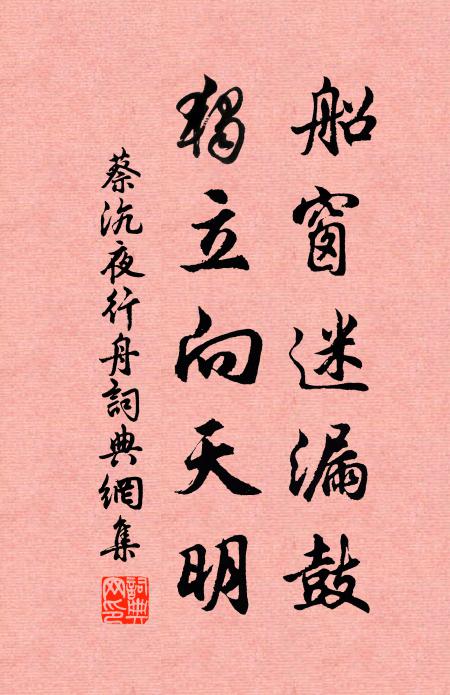 船窗迷漏鼓
獨立向天明
蔡沉夜行舟詞典網集
詞典網印